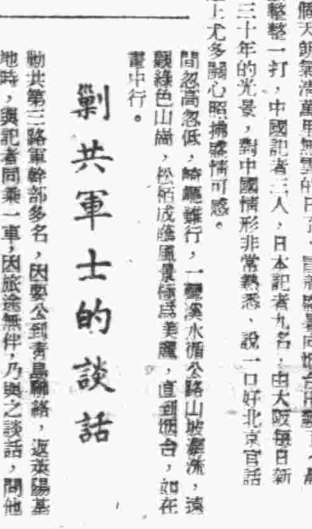 個天朗氣清萬里無雲的日子、
整整一打，中國記者三人，日本記者九名，由大阪每日新
三十年的光景，對中國情形非常熟悉、說一口好北京官話
上尤多關心照拂盛情可感。
間忽高忽低，崎嶇難行，一灣溪水循公路山坡潺流，遠
觀綠色山崗，松柏成蔭風景極爲美麗，直到烟台，如在
畫中行。
剿共軍士的談話
勦共第三路軍幹部多名，因要公到靑島聯絡，返萊陽基
地時，與記者同乘一車，因旅途無伴，乃與之談話，問他